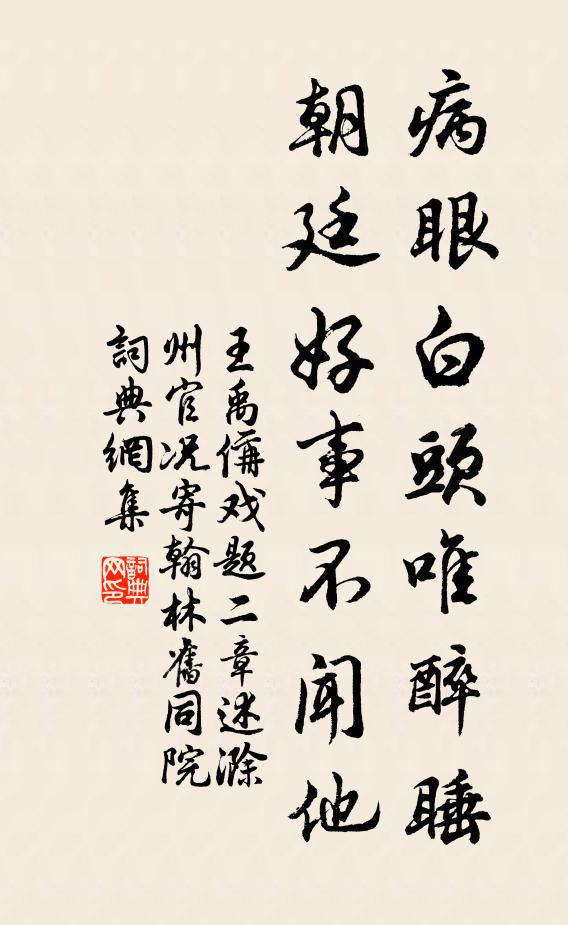 病眼白頭唯醉睡
朝廷好事不聞他
王禹偁戏题二章述滁
州官况寄翰林舊同院
詞典網集
詞典网印